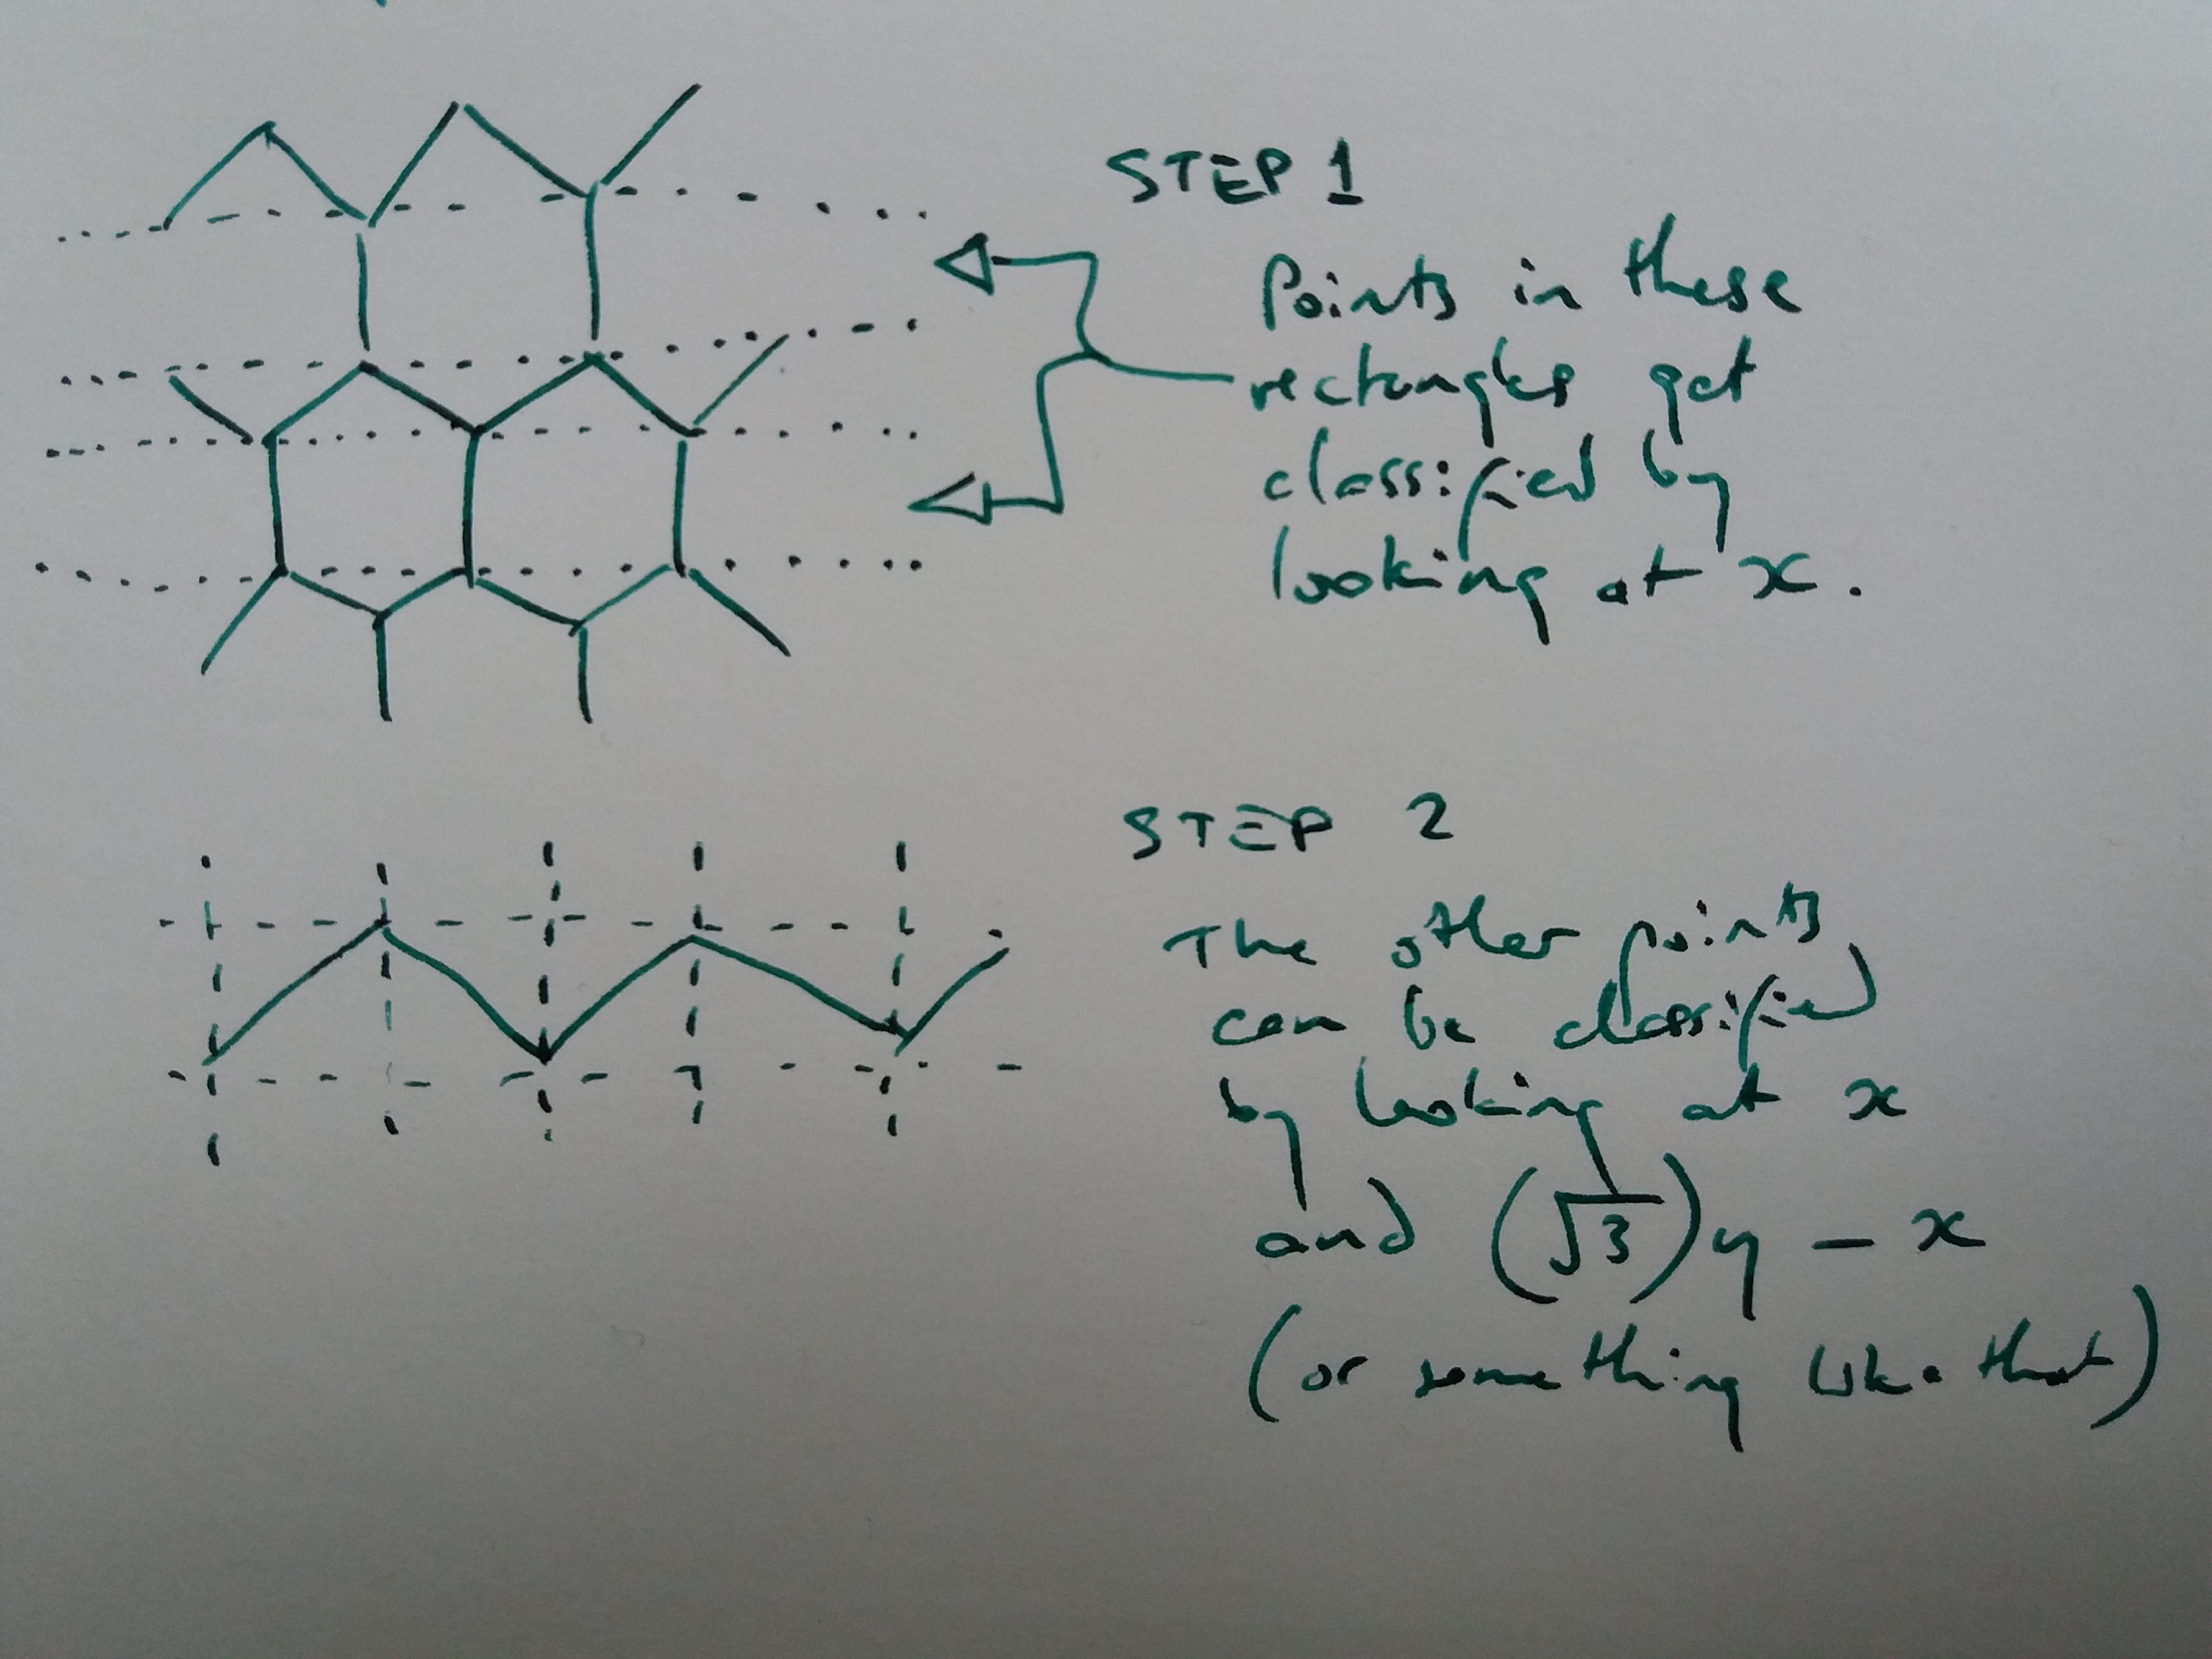 STEP 1
Points in these
rectangles get
classified by
looking at x.
STEP 2
The other points
can be classified
by looking at x
and (√3)y - x
(or something like that)